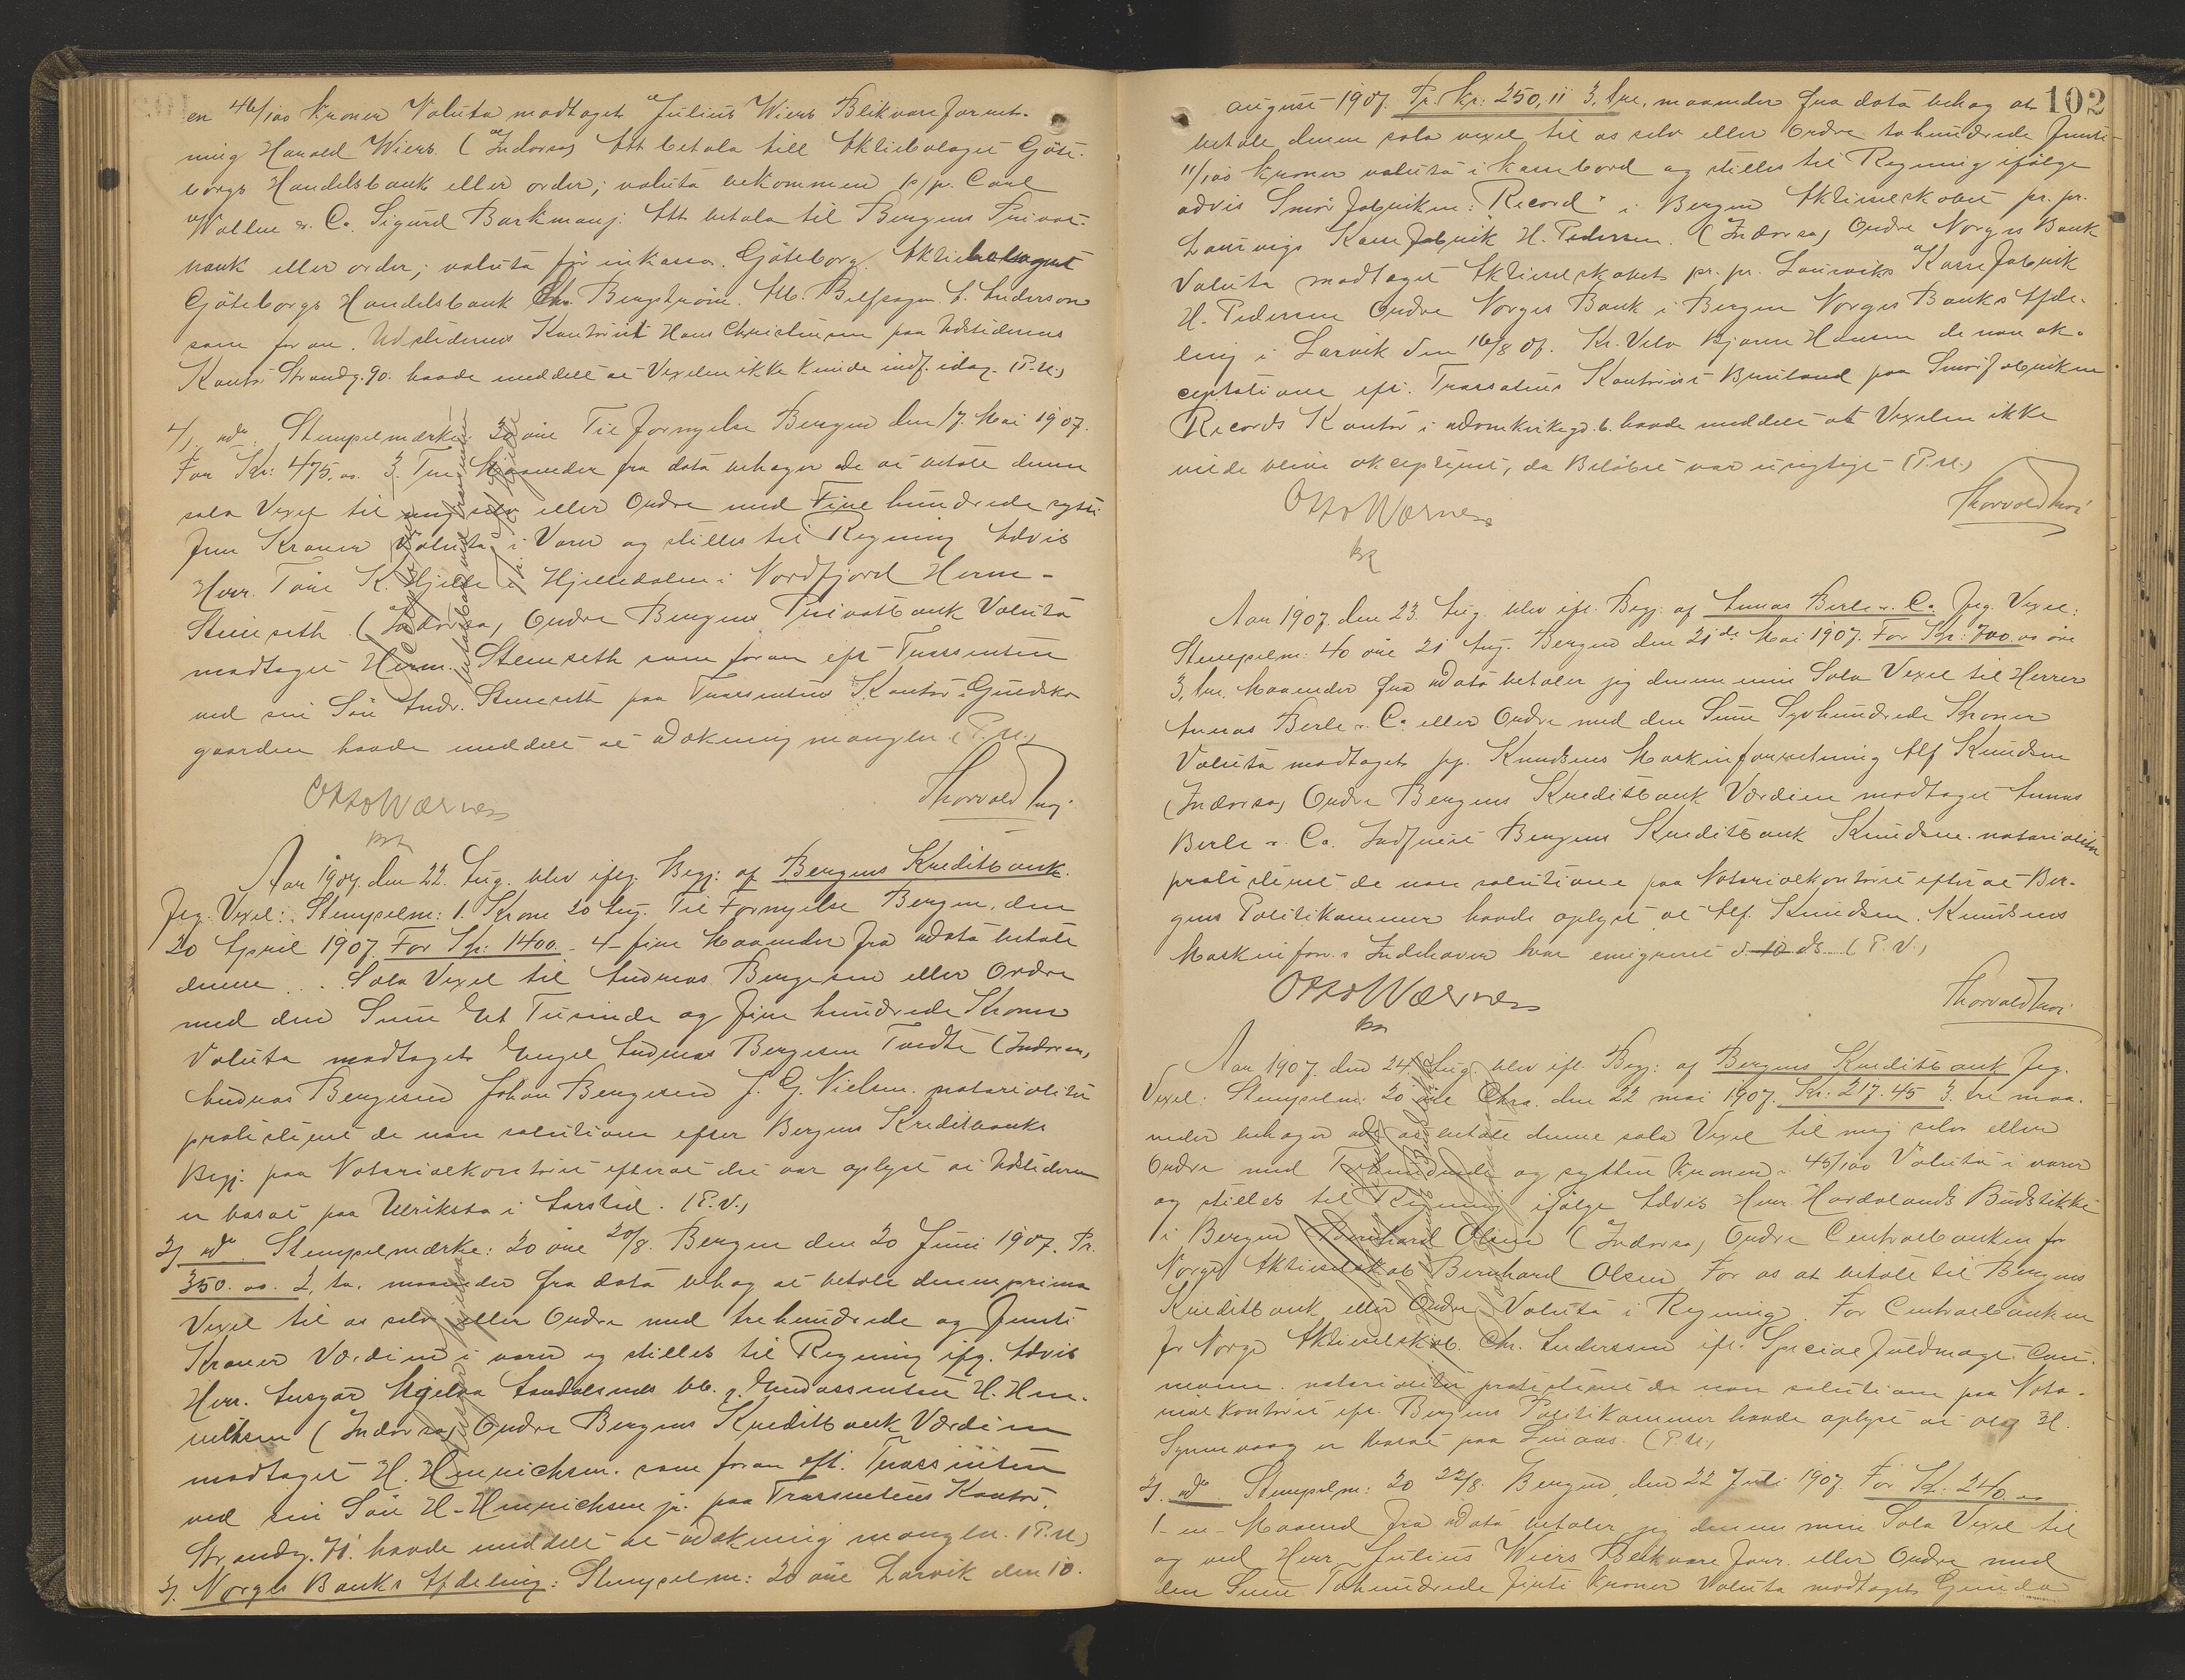 en 46/100 Kroner Valuta modtaget Julius Wiers Blikvareforret-
ning Harald Wiers. (Indorso) Att betala till Aktiebolaget Göte-
borgs Handelsbank eller order; valuta bekommen p/p. Carl
Wallin & Co. Sigurd Barkmanj: Att betala til Bergens Privat-
bank eller order; valuta för inkasso. Göteborg. Aktiebolaget
Göteborgs Handelsbank Chr. Bergström. A. Anderson
som foran. Udstederens Kontorist Hans Christensen paa Udstederens
Kontor Strandg. 90. havde meddelt at Vexelen ikke kunde indf. idag. (P.U.)
4) do: Stempelmærke: 30 öre Til fornyelse Bergen den 17. Mai 1907.
For Kr: 475.00. 3. Tre Maaneder fra dato behager de at betale denne
sola Vexel til mig selv eller Ordre med Fire hundrede sytti
fem Kroner Valuta i Varer og stilles til Regning Advis
Herr. Töne K. Hjelle i Hjelledalen i Nordfjord Herm-
Stenseth (Indorso) Ordre Bergens Privatbank Valuta
modtaget Herm. Stenseth som foran eft Trassenten
ved sin Sön Andr. Stenseth paa Trassentens Kontor i Guldsko
gaarden havde meddelt at Dækning mangler (P.U.)
Otto Wærnes
Aar 1907. den 22. Aug. blev iflg. Begj: af Bergens Kreditbank.
Jeg. Vexel: Stempelm: 1. Krone 20 Aug. Til Fornyelse Bergen, den
20 April 1907. For Kr: 1400.- 4- fire Maaneder fra dato betale
denne ... Sola Vexel til Andreas Bergesen eller Ordre
med den Sum Et Tusinde og fire hundrede Kroner
Valuta modtaget Engel Andreas Bergesen Tvedte (Indorso,
Andreas Bergesen Johan Bergesen J. G. Nielsen. notarialiter
protesteret de non solutione efter Bergens Kreditbanks
Begj. paa Notarialkontoret efterat det var oplyst at Udstederen
er bosat paa Ulriksta i Aarstad. (P.V.)
2) do. Stempelmærke: 20 öre 20/8. Bergen den 20 Juni 1907. Pr.
350.00. 2, to. maaneder fra dato behag at betale denne prima
Vexel til os selv eller Ordre med trehundrede og femti
Kroner Værdien i varer og stilles til Regning iflg. Advis
Herr. Ansgar Mjelva Aandalsnes H. Hen-
richsen (Indorso) Ordre Bergens Kreditbank Værdien
modtaget H. Henrichsen. som foran eft. Trassenten
ved sin Sön H. Henrichsen jr. paa Trassentens Kontor.
Strandg. 71. havde meddelt at Dækning mangler. (P.U)
3) Norges Banks Afdeling: Stempelm: 20 öre Larvik den 10.
102
august 1907. Pr. Kr: 250,11 3. tre, maaneder fra dato behag at
betale denne sola vexel til os selv eller Ordre tohundrede femti
11/100 Kroner valuta i Kassebord og stilles til Regning ifølge
advis Smörfabriken: "Record" i Bergen Aktieselskabet pr. pr.
Laurvigs Kassefabrik H. Pedersen. (Indorso) Ordre Norges Bank
Valuta modtaget Aktieselskabet pr. pr. Laurviks Kassefabrik
H. Pedersen Ordre Norges Bank i Bergen Norges Banks Afde-
ling i Larvik den 16/8 07. Kr. Velo Bjarne Hansen de non ak-
ceptatione eft. Trassatens Kontorist Brusland paa Smörfabriken
Records Kontor i Domkirkegd. 6. havde meddelt at Vexelen ikke
vilde blive akcepteret, da Belöbet var urigtigt (P.U.)
Otto Wærnes
Aar 1907. den 23. Aug. blev eft. Begj. af Annas Berle & Co. Jeg. Vexel:
Stempelm: 40 öre 21 Aug. Bergen den 21de Mai 1907. For Kr: 700.00 öre
3, tre, Maaneder fra Dato betaler jeg denne min Sola Vexel til Herrer
Annas Berle & Co eller Ordre med den Sum Syvhundrede Kroner
Valuta modtaget pp. Knudsens Maskinforretning Alf Knudsen
(Indorso) Ordre Bergens Kreditbank Værdien modtaget Annas
Berle & Co. Indfriet Bergens Kreditbank Knudsen. notarialiter
protesteret de non solutione paa Notarialkontoret efterat Ber-
gens Politikammer havde oplyst at Alf. Knudsen. Knudsens
Maskinforr.s Indehaver har emigreret d. 10 ds. (P.V.)
Otto Wærnes
Aar 1907. den 24. Aug. blev eft. Begj: af Bergens Kreditbank Jeg.
Vexel: Stempelm: 20 öre Chra. den 22 mai 1907. Kr: 217.45 3. tre maa-
neder behager de at betale denne sola Vexel til mig selv eller
Ordre med Tohundrede og sytten Kroner 45/100 Valuta i varer
og stilles til Regning ifølge Advis Herr. Hordalands Budstikke
i Bergen Bernhard Olsen (Indorso) Ordre Centralbanken for
Norge Aktieselskab Bernhard Olsen For os at betale til Bergens
Kreditbank eller Ordre Valuta i Regning. For Centralbanken
for Norge Aktieselskab. Chr. Anderssen eft. Special fuldmagt
notarialiter protesteret de non solutione paa Nota-
rialkontoret eft. Bergens Politikammer havde oplyst at Olaf H.
Synnevaag er bosat paa Lindaas. (P.U.)
2). do Stempelm: 20 22/8. Bergen, den 22 Juli 1907. For Kr. 240.00
1- en- Maaned fra Dato betaler jeg denne min Sola Vexel til
og ved Herr Julius Wiers Blikvare forr. eller Ordre med
den Sum Tohundrede firti Kroner Valuta modtaget Gunda